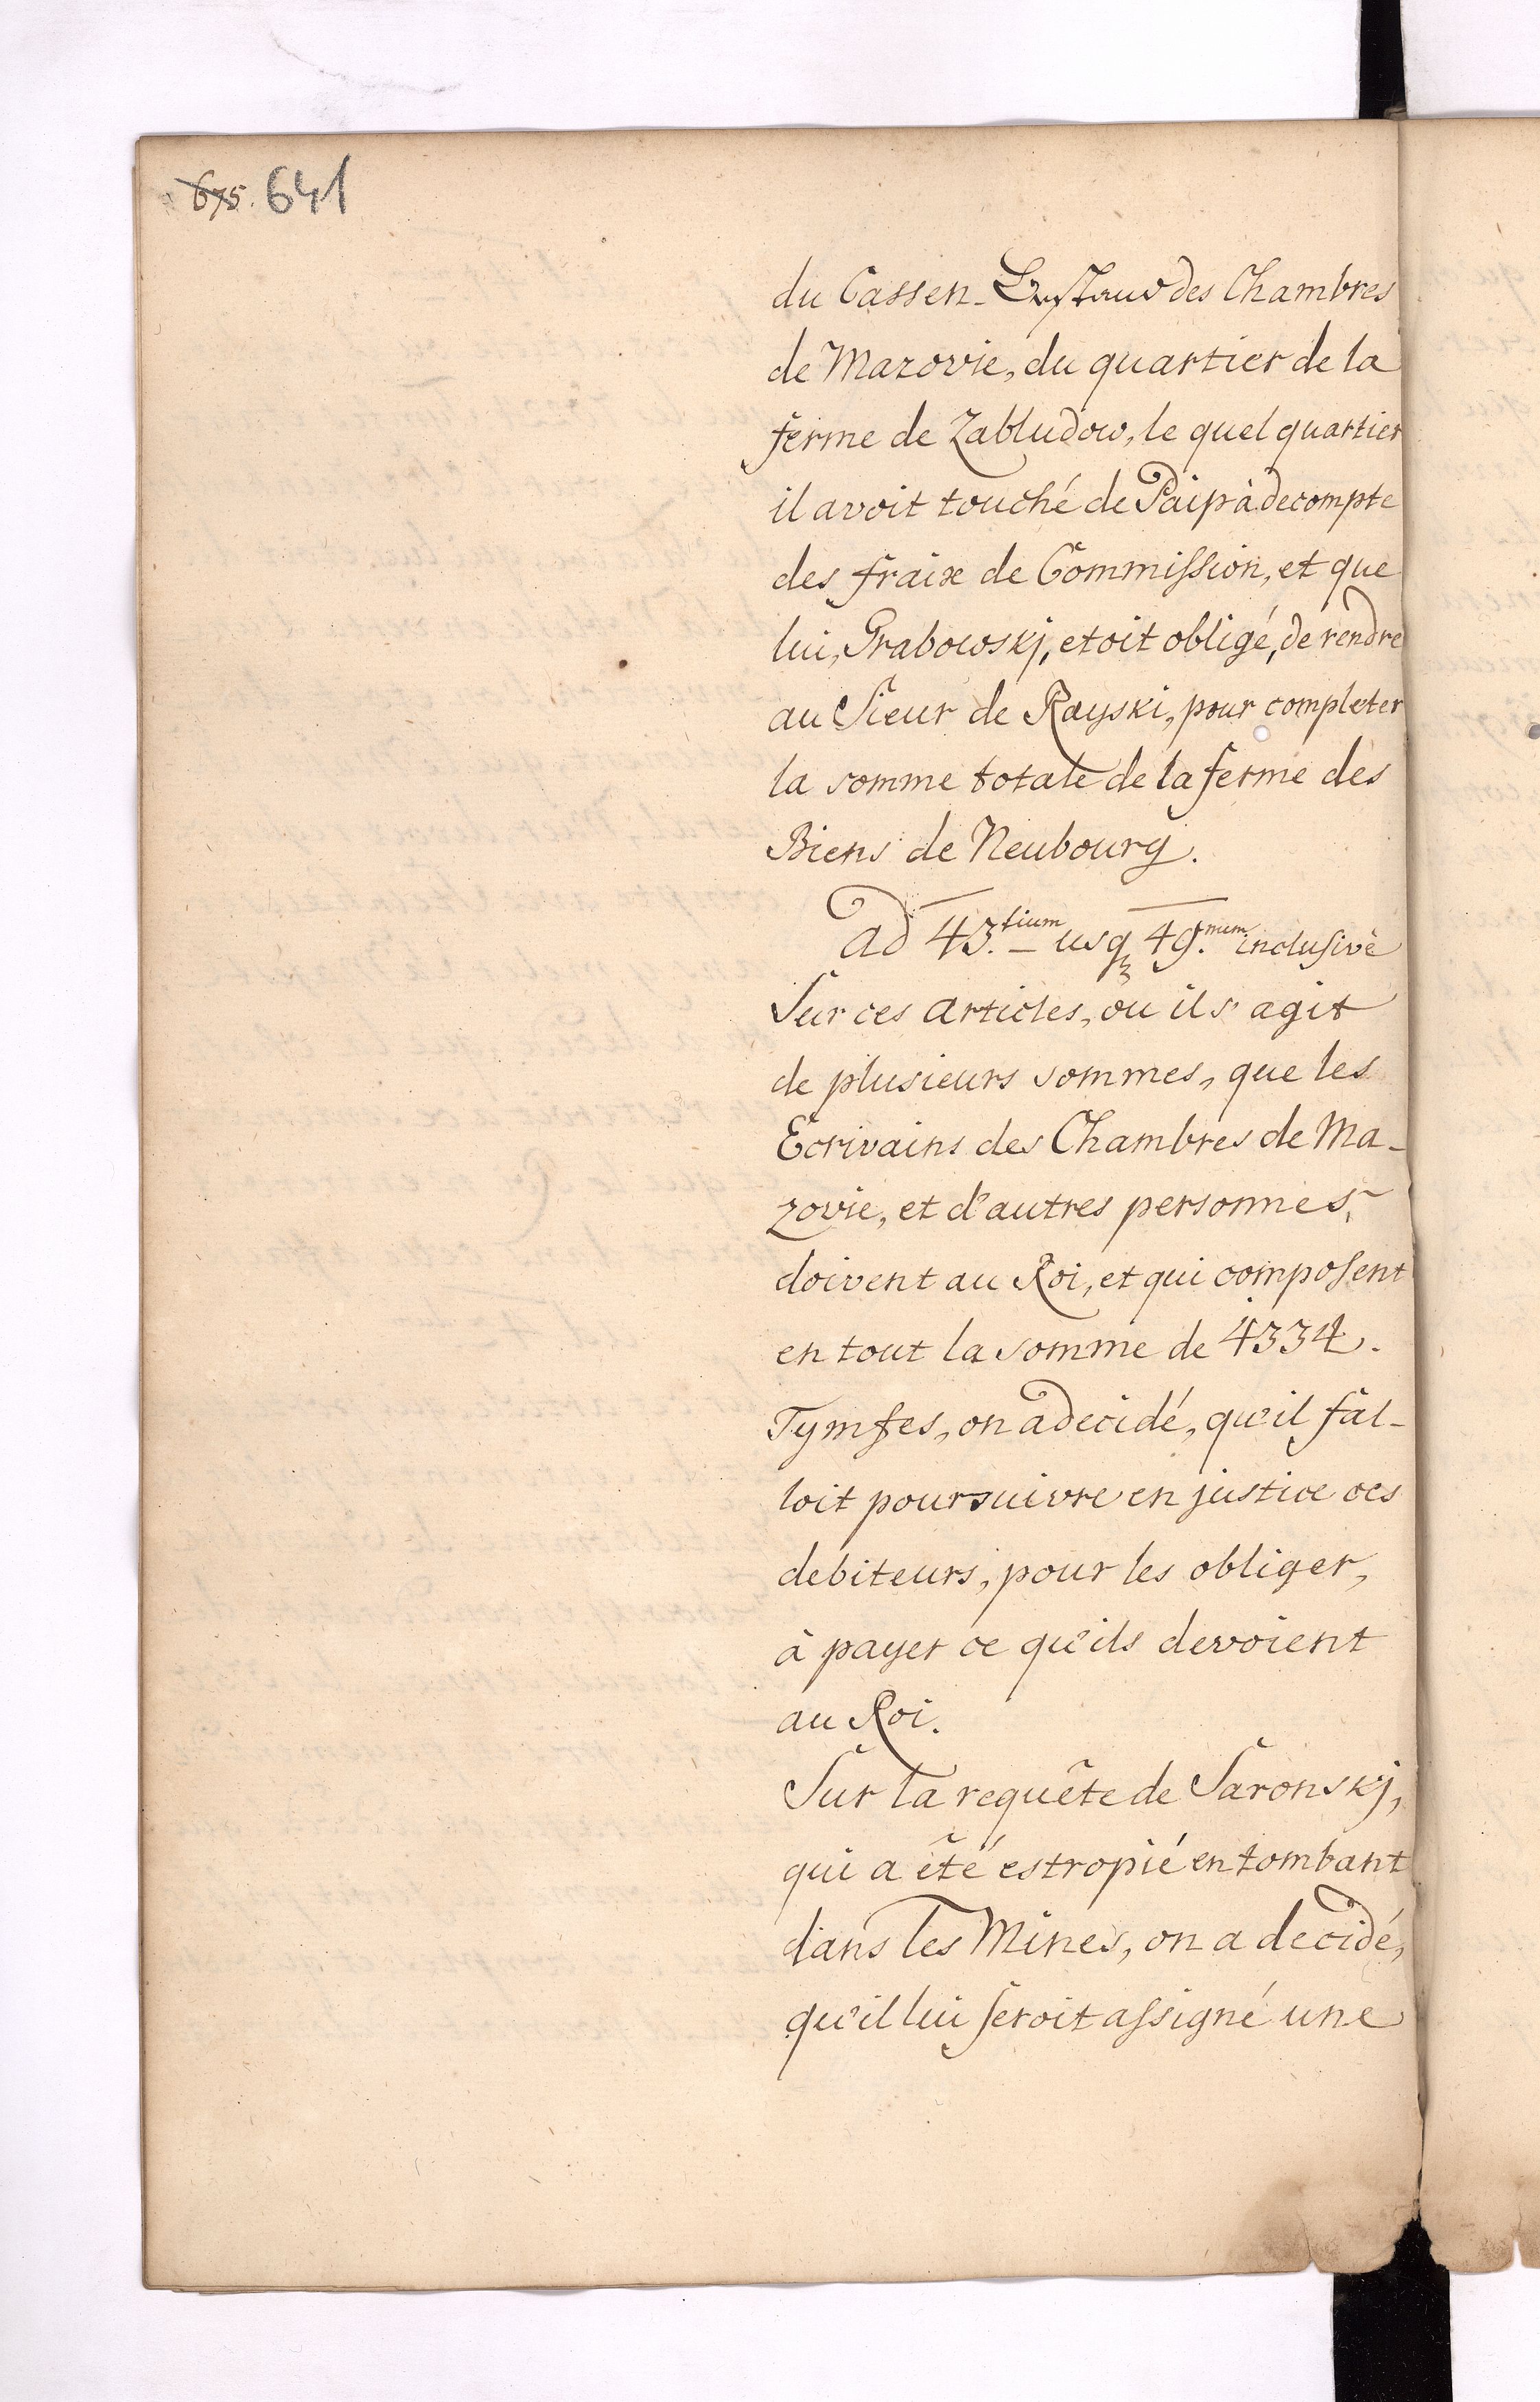 675. 641
du Cassen-Bestand des Chambres
de Mazovie, du quartier de la
ferme de Zabludow, le quel quartier
il avoit touché de Paip à decompte
des fraix de Commission, et que
lui, Grabowskj, etoit obligé, de rendre
au Sieur de Rayski, pour completer
la somme totale de la ferme des
Biens de Neubourg.
ad 43.tium usq 49.num inclusivè
Sur ces articles, ou il s'agit
de plusieurs sommes, que les
Ecrivains des Chambres de Ma-
zovie, et d'autres personnes,
doivent au Roi, et qui composent
en tout la somme de 4334.
Tymfes, on a decidé, qu'il fal-
loit poursuivre en justice ces
debiteurs, pour les obliger,
à payer ce qu'ils devoient
au Roi.
Sur la requête de Saronskj,
qui a êté estropié en tombant
dans les Mines, on a decidé,
qu'il lui seroit assigné une